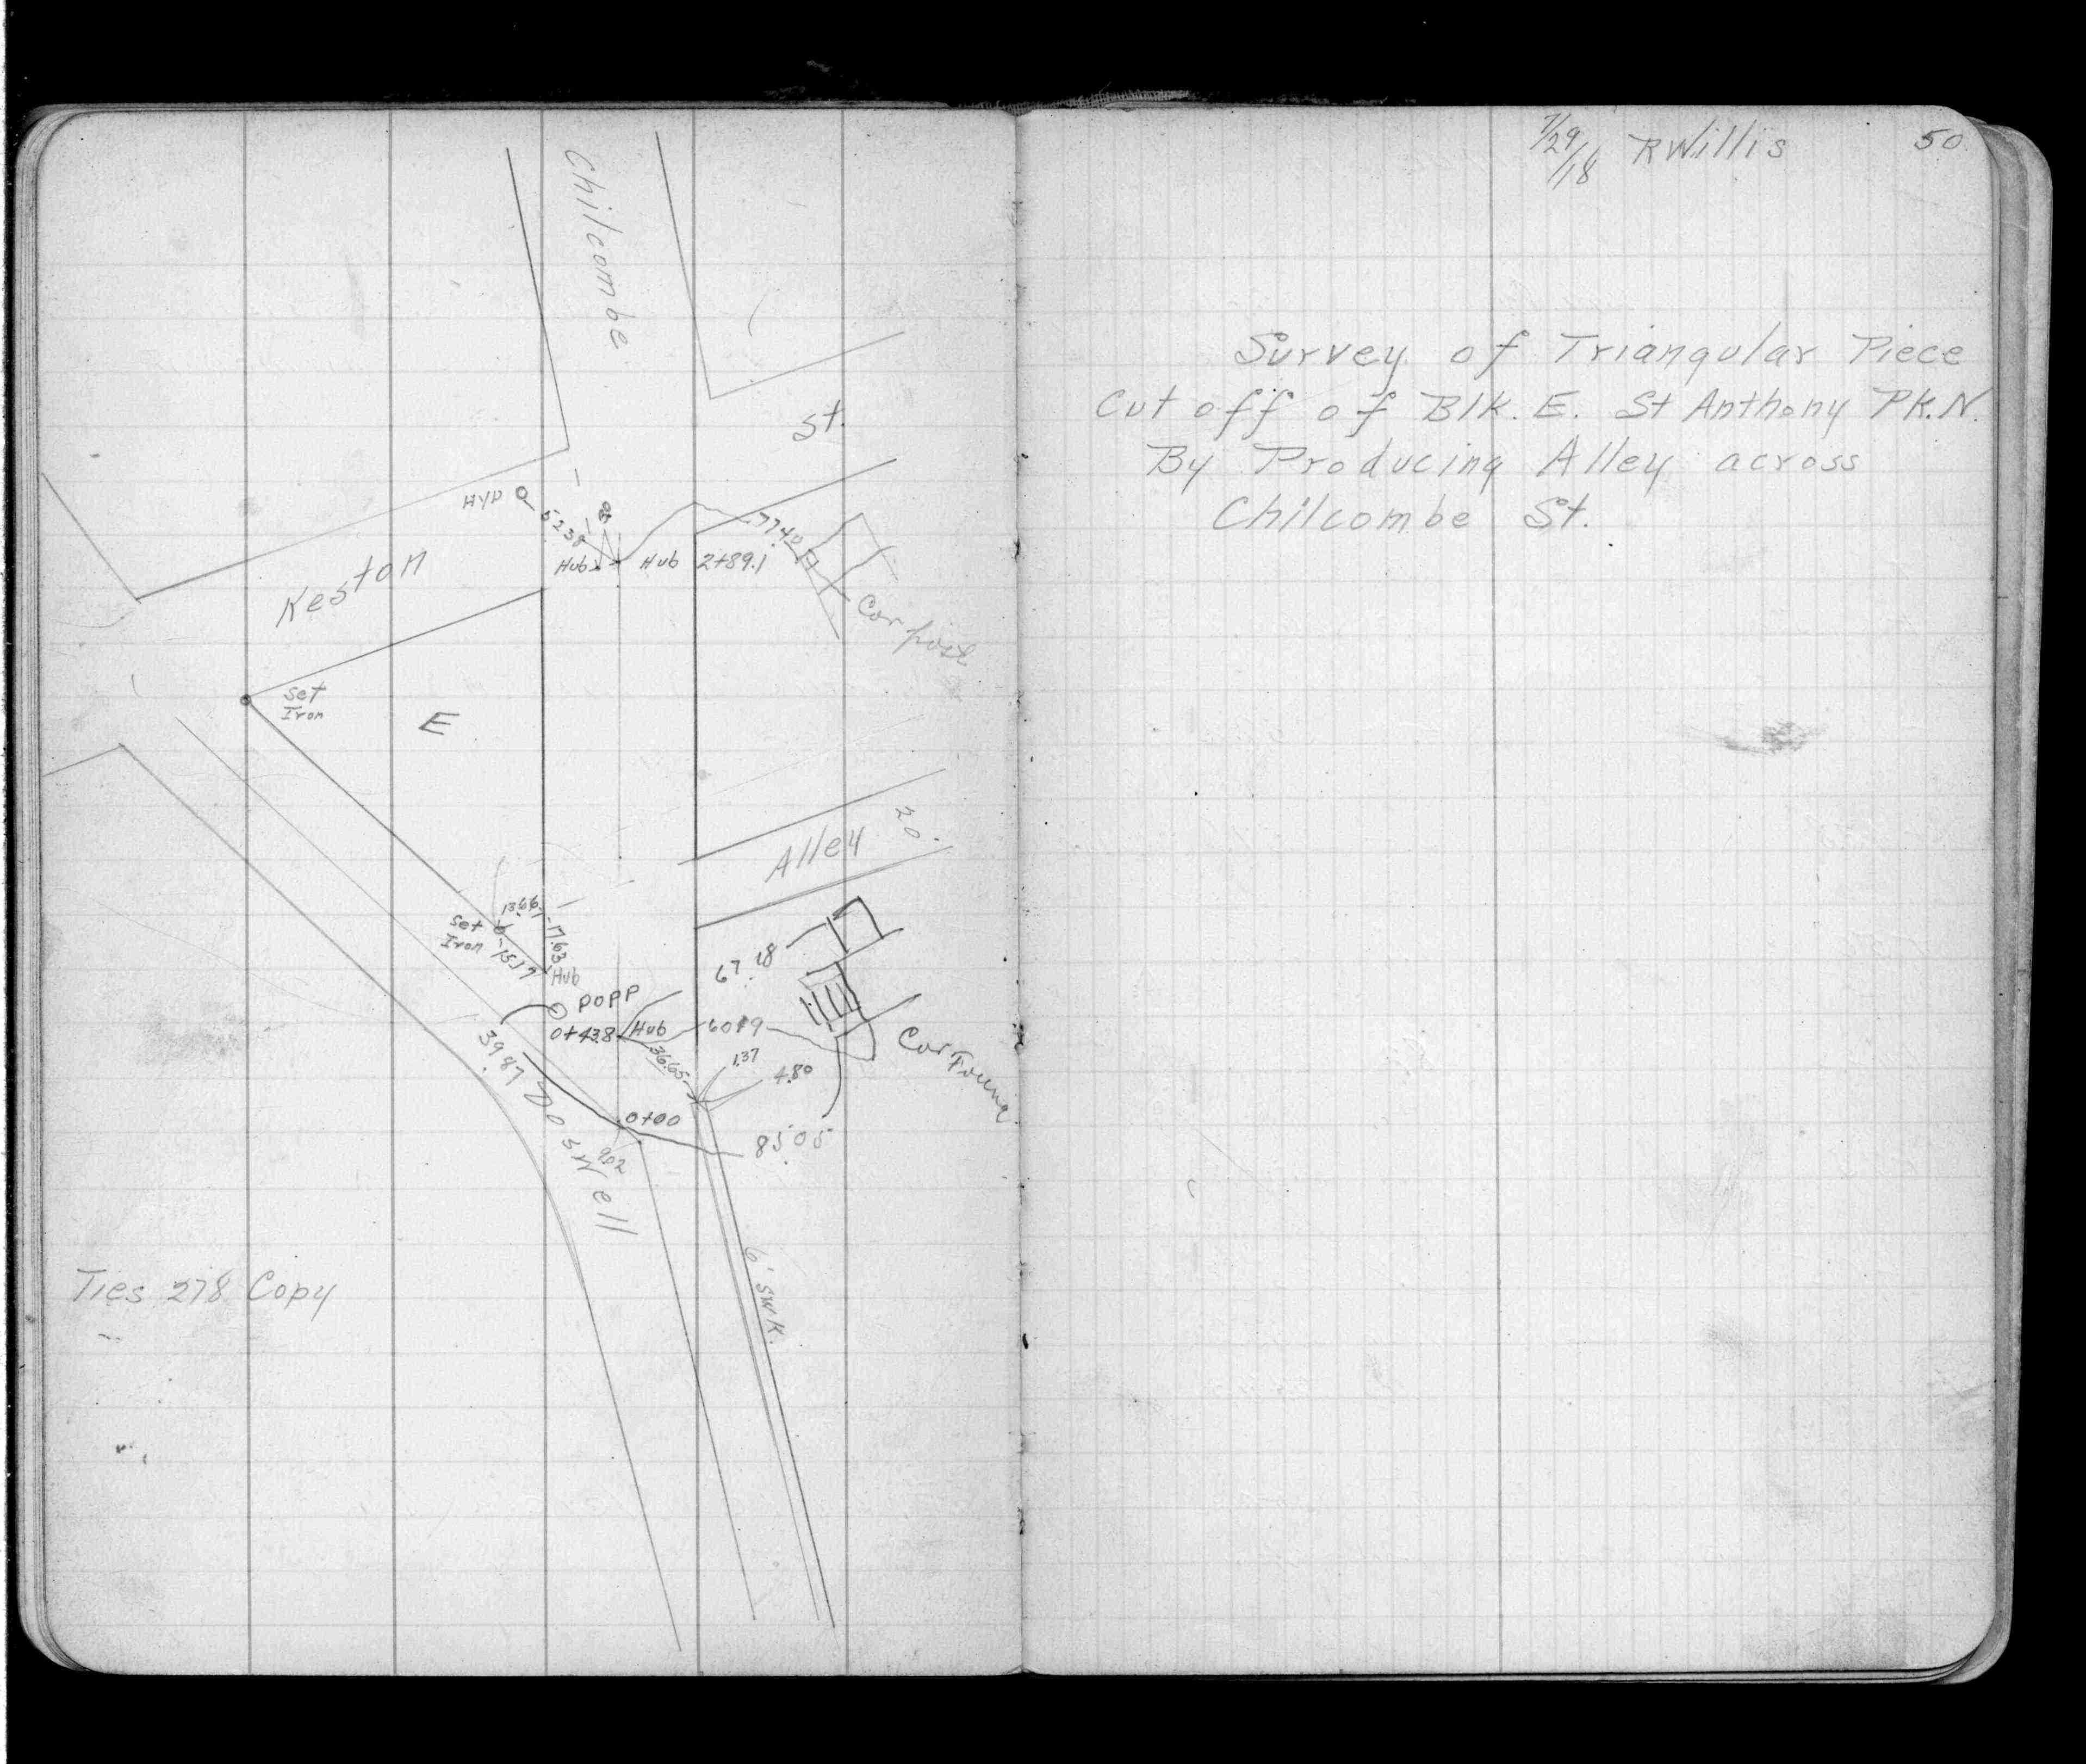 Chilcombe
St.
HYD
52.38
Hub
Hub 2+89.1
77.40
Cor post
Keston
set
Iron
E
Alley
20'
17.63
set
Iron
15.17
Hub
POPP
0+43.8
Hub
67.18
60.19
Cor Found
39.87
36.65
1.37
4.80
0+00
85.05
9.02
Doswell
6' SWK.
Ties 278 Copy
7/29/18 RWillis 50
Survey of Triangular Piece
Cut off of Blk. E. St Anthony Pk. N.
By Producing Alley across
Chilcombe St.